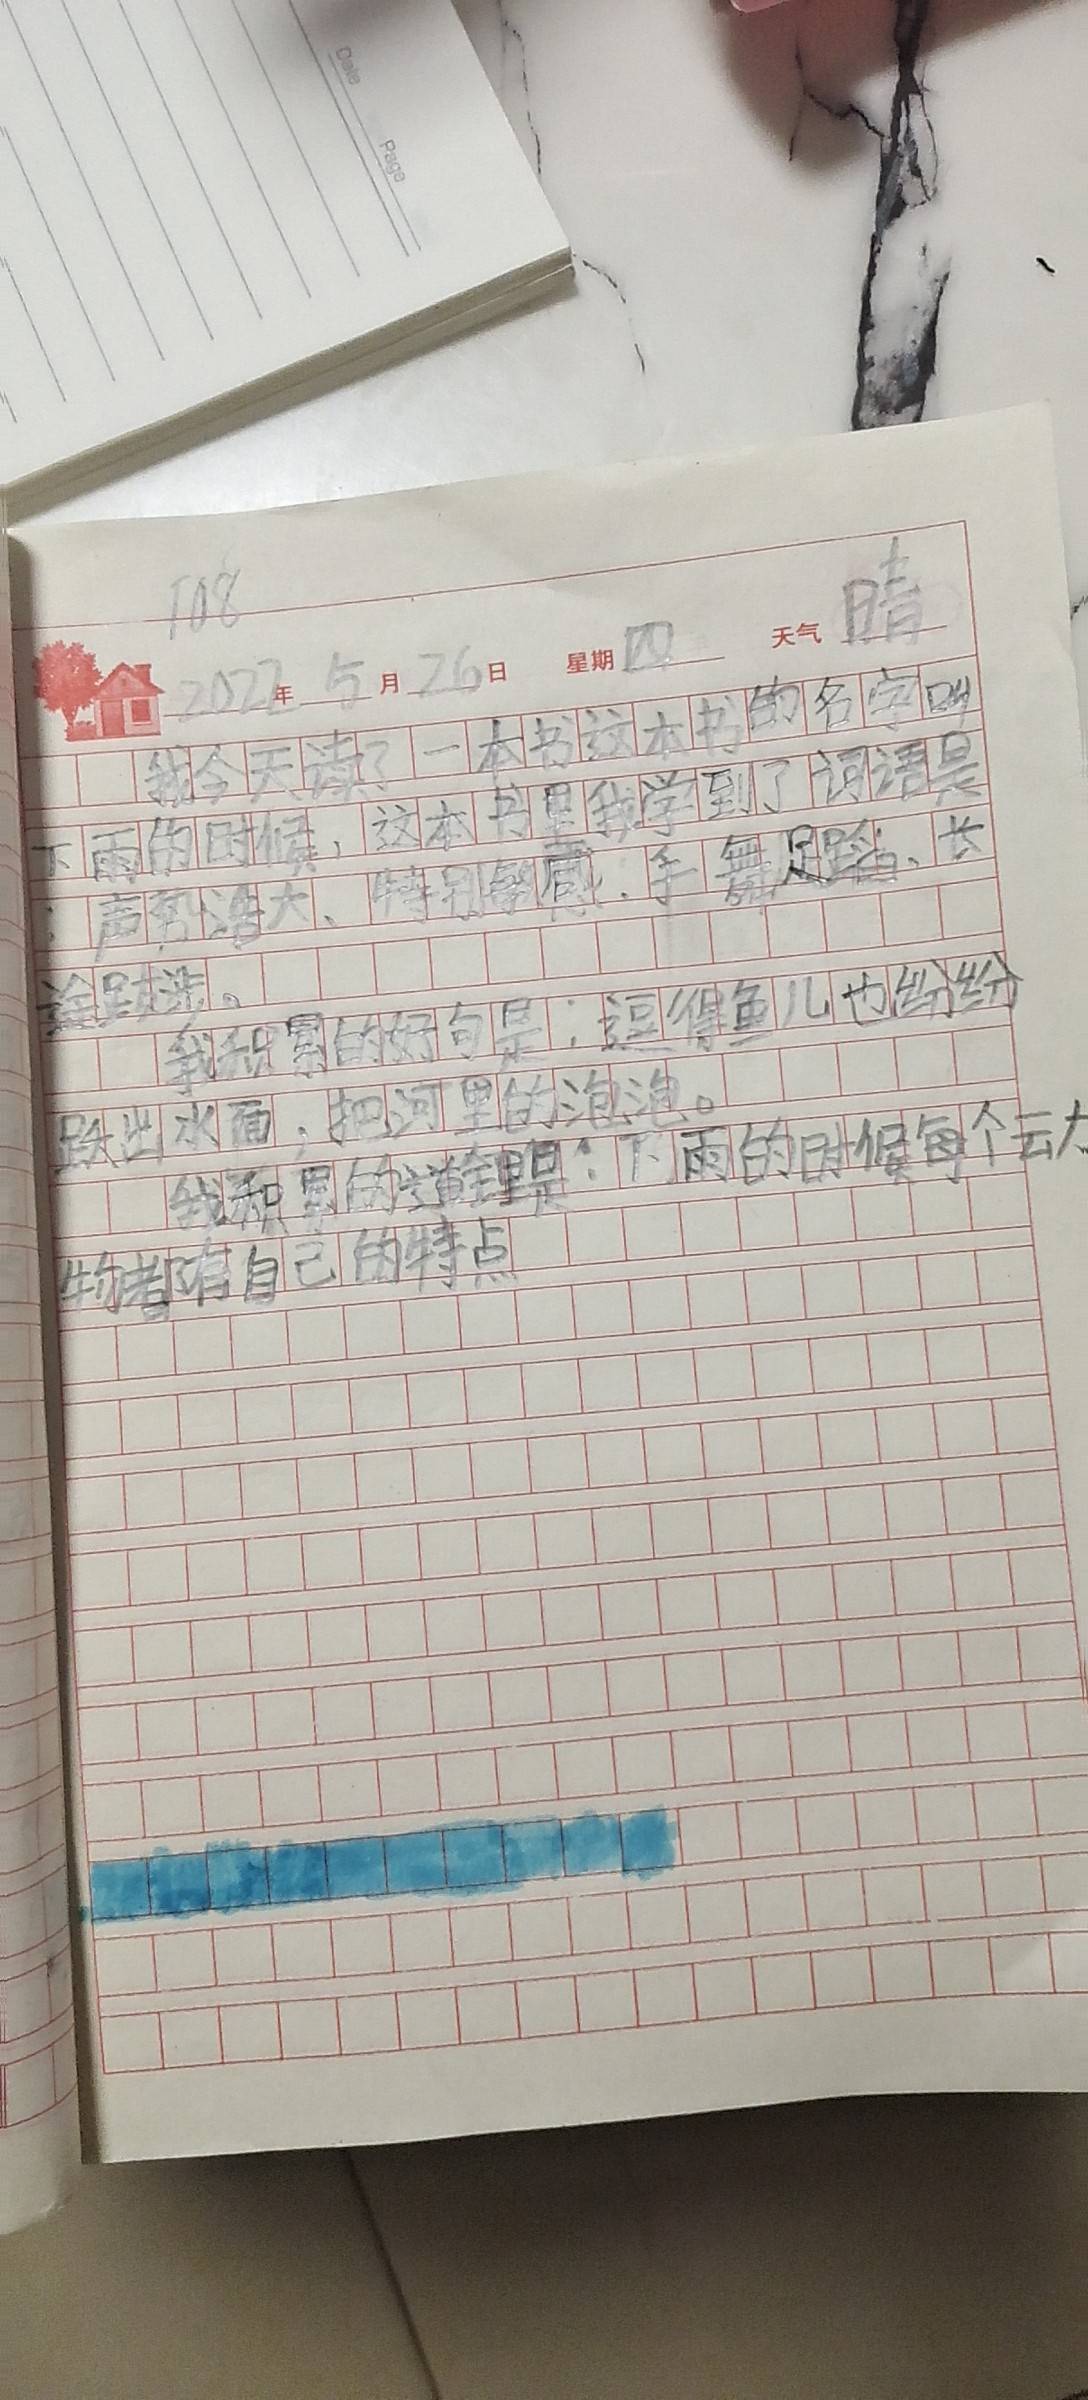 Date
Page
T08
2022年5月26日 星期四 天气晴
我今天读了一本书这本书的名字叫
下雨的时候,这本书里我学到了词语是
:声势浩大、特别敏感、手舞足蹈、长
途跋涉。
我积累的好句是:逗得鱼儿也纷纷
跃出水面,把河里的泡泡。
我积累的道理是:下雨的时候每个动
物都有自己的特点